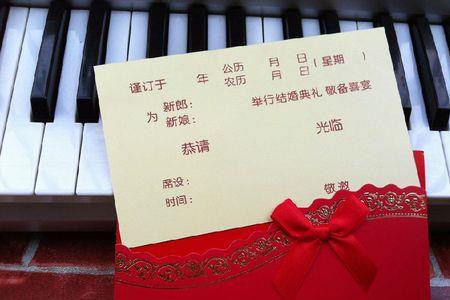 公历 月 日
谨订于 年 (星期 )
农历 月 日
新郎:
为 举行结婚典礼 敬备喜宴
新娘:
恭请 光临
席设: 敬邀
时间: